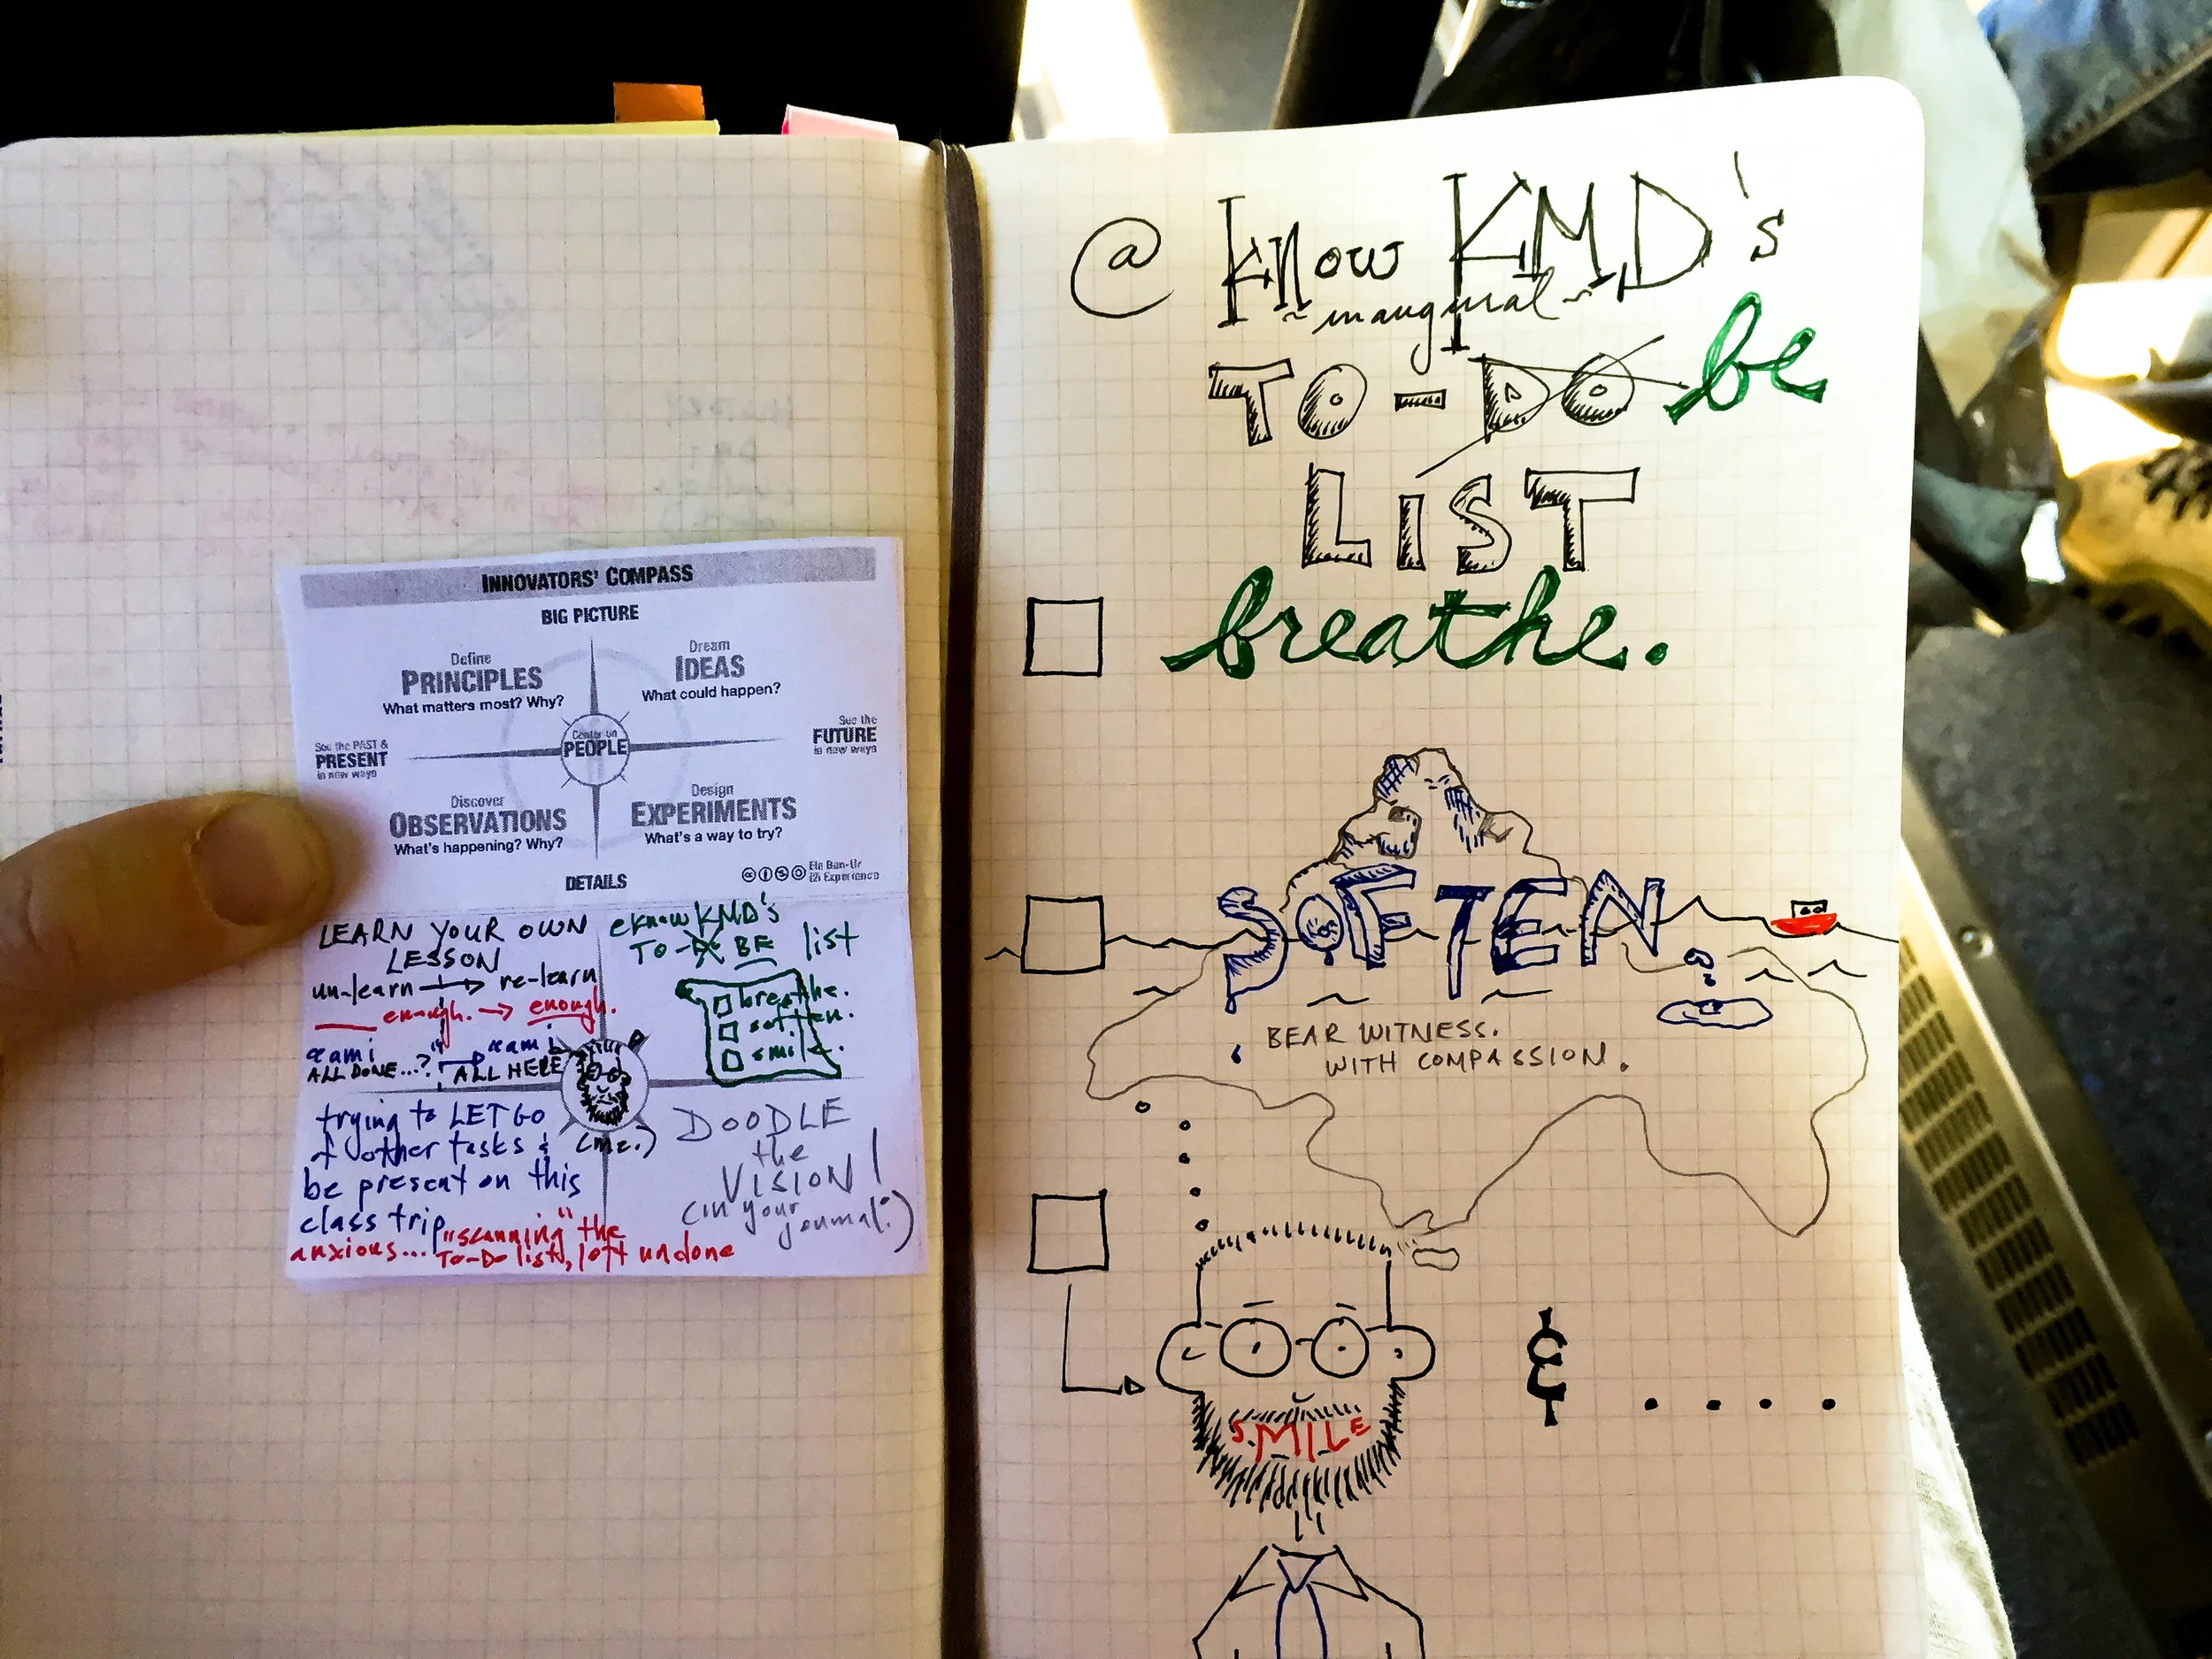 INNOVATORS' COMPASS
BIG PICTURE
Define
PRINCIPLES
What matters most? Why?
Dream
IDEAS
What could happen?
See the PAST &
PRESENT
in new ways
Center on
PEOPLE
See the
FUTURE
in new ways
Discover
OBSERVATIONS
What's happening? Why?
Design
EXPERIMENTS
What's a way to try?
DETAILS
LEARN YOUR OWN
LESSON
un-learn → re-learn
___ enough. → enough.
"am i
ALL DONE...?" → "am i
ALL HERE
@know KMD's
TO-DO BE list
breathe.
soften.
smile.
(me.)
trying to LET GO
of other tasks &
be present on this
class trip
anxious... "scanning" the
TO-DO list, left undone
DOODLE
the
VISION!
(in your
journal!)
@ know KMD's
~inaugural~
TO-DO be
LIST
breathe.
SOFTEN
BEAR WITNESS.
WITH COMPASSION.
SMILE
& ....